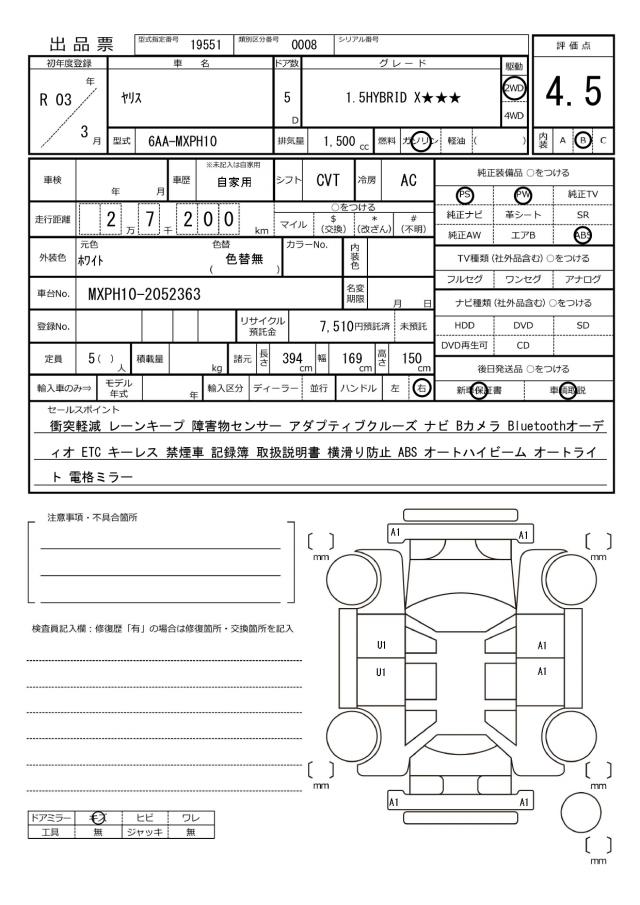 出品票 型式指定番号 19551 類別区分番号 0008 シリアル番号
評価点
4.5
内装 A B C
初年度登録 車名 ドア数 グレード 駆動
R 03 年 3 月
ヤリス 5 D 1.5HYBRID X★★★ 2WD
4WD
型式 6AA-MXPH10 排気量 1,500 cc 燃料 ガソリン 軽油 ( )
車検 年 月 車歴 ※未記入は自家用 自家用 シフト CVT 冷房 AC
走行距離 2 万 7 千 2 0 0 km
○をつける
マイル $(交換) *(改ざん) #(不明)
外装色 元色 ホワイト 色替 ( 色替無 ) カラーNo. 内装色
車台No. MXPH10-2052363 名変期限 月 日
登録No. リサイクル預託金 7,510円預託済 未預託
定員 5 ( ) 人 積載量 kg 諸元 長さ 394 cm 幅 169 cm 高さ 150 cm
輸入車のみ⇒ モデル年式 年 輸入区分 ディーラー 並行 ハンドル 左 右
純正装備品 ○をつける
PS PW 純正TV
純正ナビ 革シート SR
純正AW エアB ABS
TV種類(社外品含む)○をつける
フルセグ ワンセグ アナログ
ナビ種類(社外品含む)○をつける
HDD DVD SD
DVD再生可 CD
後日発送品 ○をつける
新車保証書 車輌取説
セールスポイント
衝突軽減 レーンキープ 障害物センサー アダプティブクルーズ ナビ Bカメラ Bluetoothオーデ
ィオ ETC キーレス 禁煙車 記録簿 取扱説明書 横滑り防止 ABS オートハイビーム オートライ
ト 電格ミラー
注意事項・不具合箇所
検査員記入欄：修復歴「有」の場合は修復箇所・交換箇所を記入
ドアミラー キズ ヒビ ワレ
工具 無 ジャッキ 無
A1 A1
mm mm
U1 A1
U1 A1
mm mm
A1 A1
mm